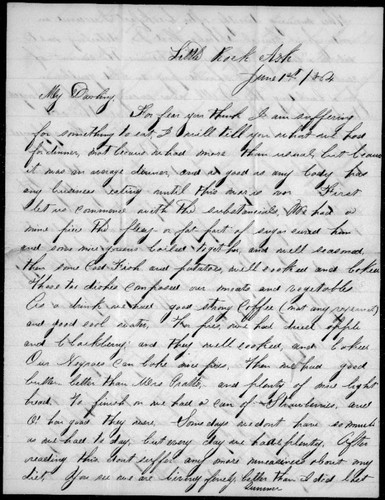 Little Rock Ark
June 1st /864
My Darling,
For fear you think I am suffering
for something to eat, I will tell you what we had
for dinner, not because we had more than usual, but because
it was an average dinner, and as good as any body has
any business eating until this war is over First
let us commence with the substancials, We had a
mine fire the fleay or fat part of sugar cured ham
and some nice greens boiled together, and well seasoned,
then some Cod Fish and potatoes, well cooked and baked
These two dishes composed our meats and vegetables
As a drink we had good strong Coffee (not any
and good cool water, For pies, we had dried apple
and blackberry; and they well cooked, and baked
Our Negroes can bake nice pies, Then we had good
butter better than Mrs and plenty of nice light
bread. To finish on we had a can of Strawberries, and
O! how good they were. Some days we dont have so much
as we had to day, but every day we had plenty, After
reading this dont suffer any more uneasiness about my
diet. You see we are living finely, better than I did last
Summer